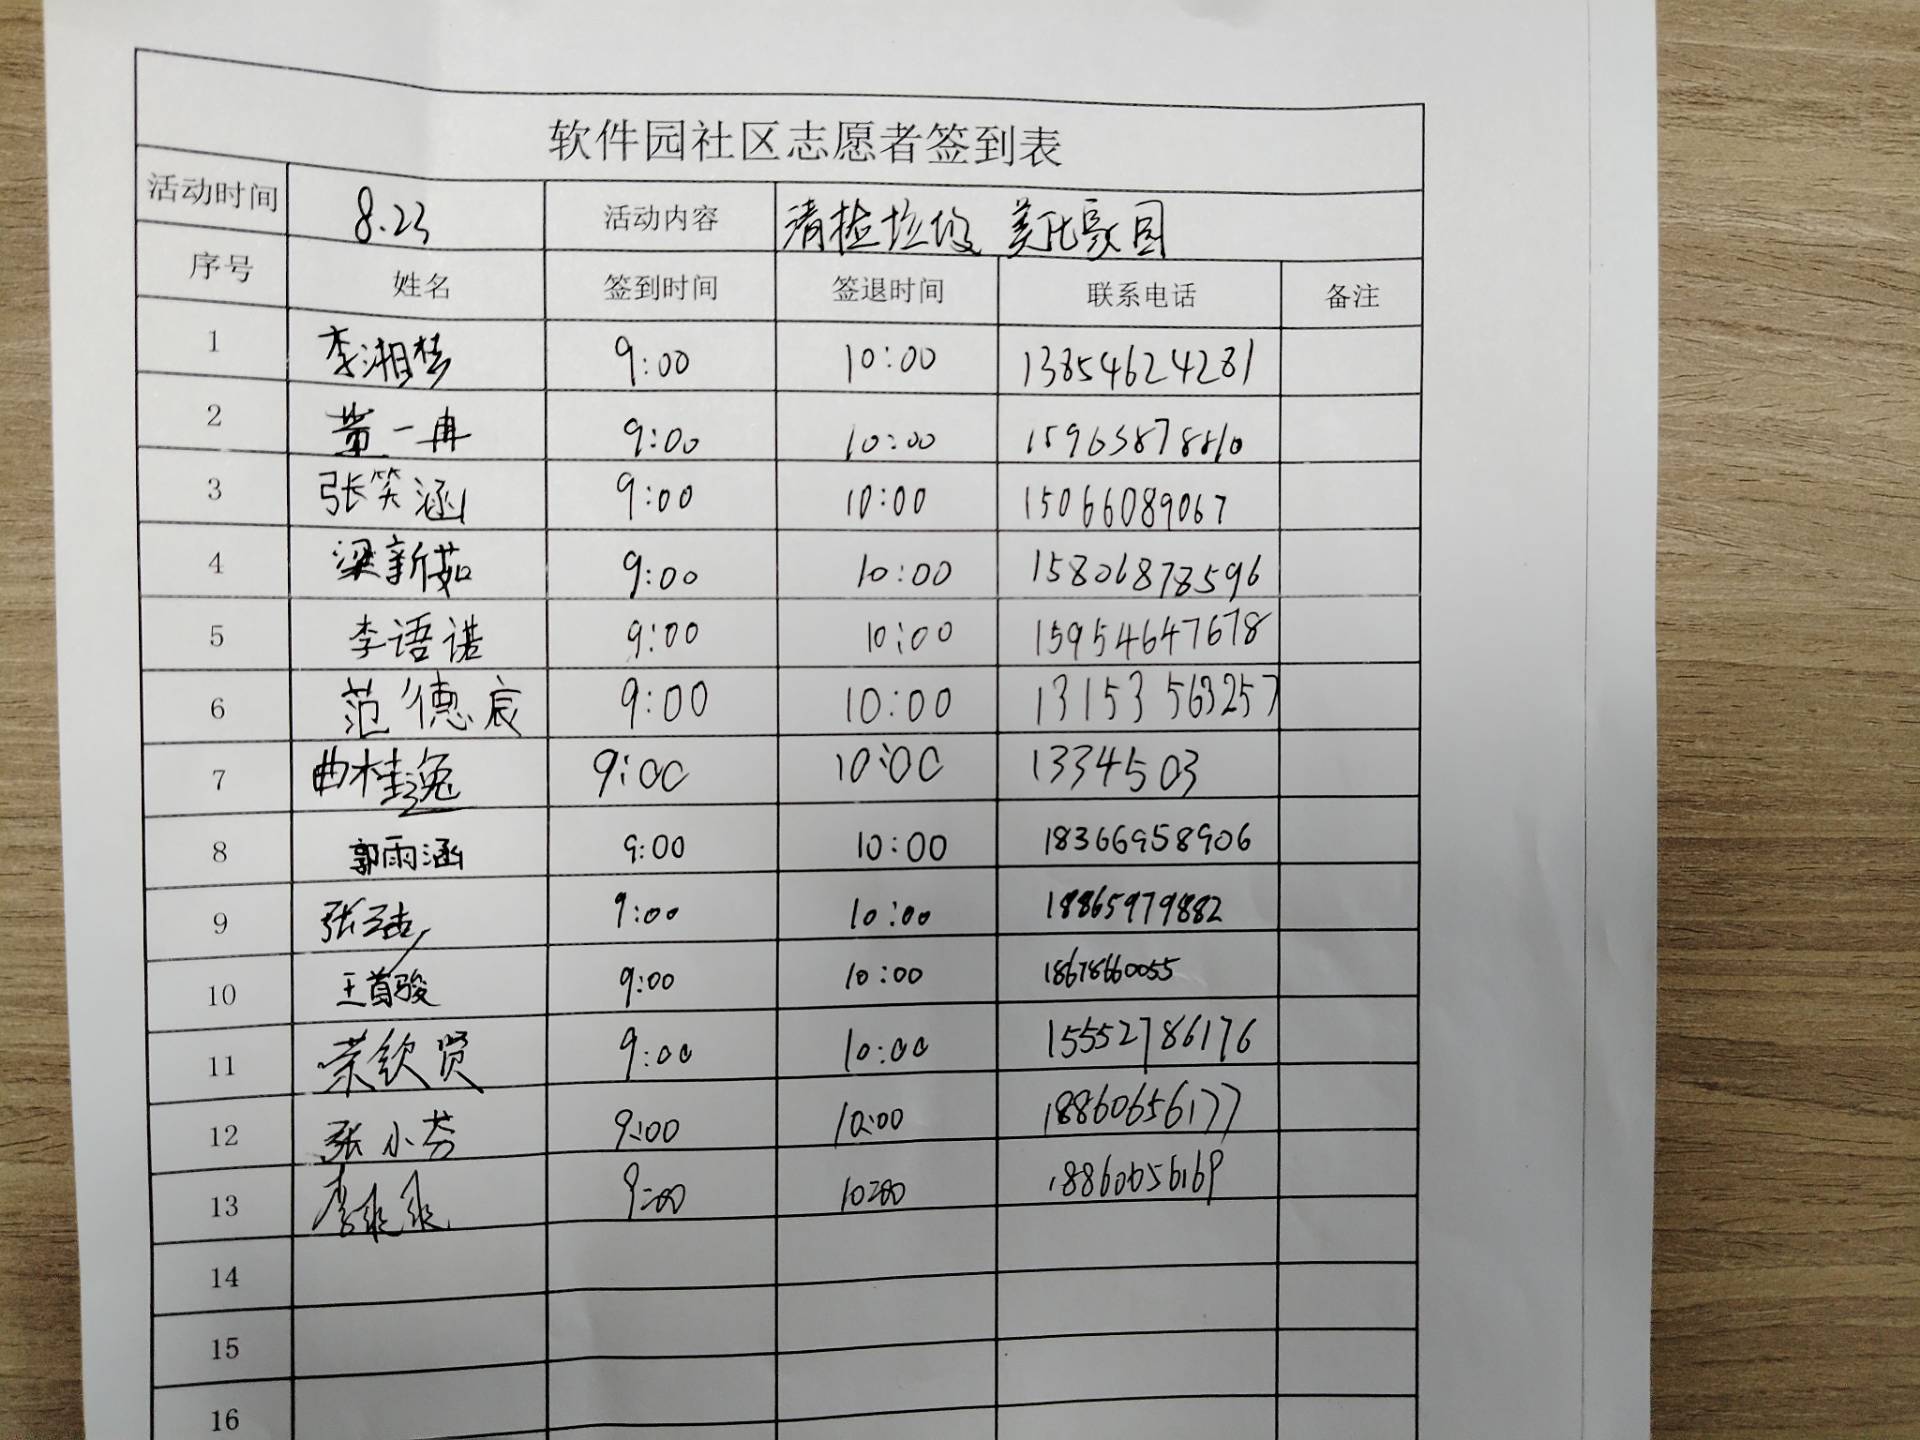 软件园社区志愿者签到表
活动时间 8.23 活动内容 清捡垃圾 美化家园
序号 姓名 签到时间 签退时间 联系电话 备注
1 李湘梦 9:00 10:00 13854624281
2 董一冉 9:00 10:00 15963878810
3 张笑涵 9:00 10:00 15066089067
4 梁新茹 9:00 10:00 15806878596
5 李语诺 9:00 10:00 15954647678
6 范德宸 9:00 10:00 13153563257
7 曲桂逸 9:00 10:00 1334503
8 郭雨涵 9:00 10:00 18366958906
9 张 9:00 10:00 18865979882
10 王首骏 9:00 10:00 18678660055
11 荣钦贤 9:00 10:00 15552786176
12 张小芬 9:00 10:00 18860656177
13 李 9:00 10:00 18860656169
14
15
16